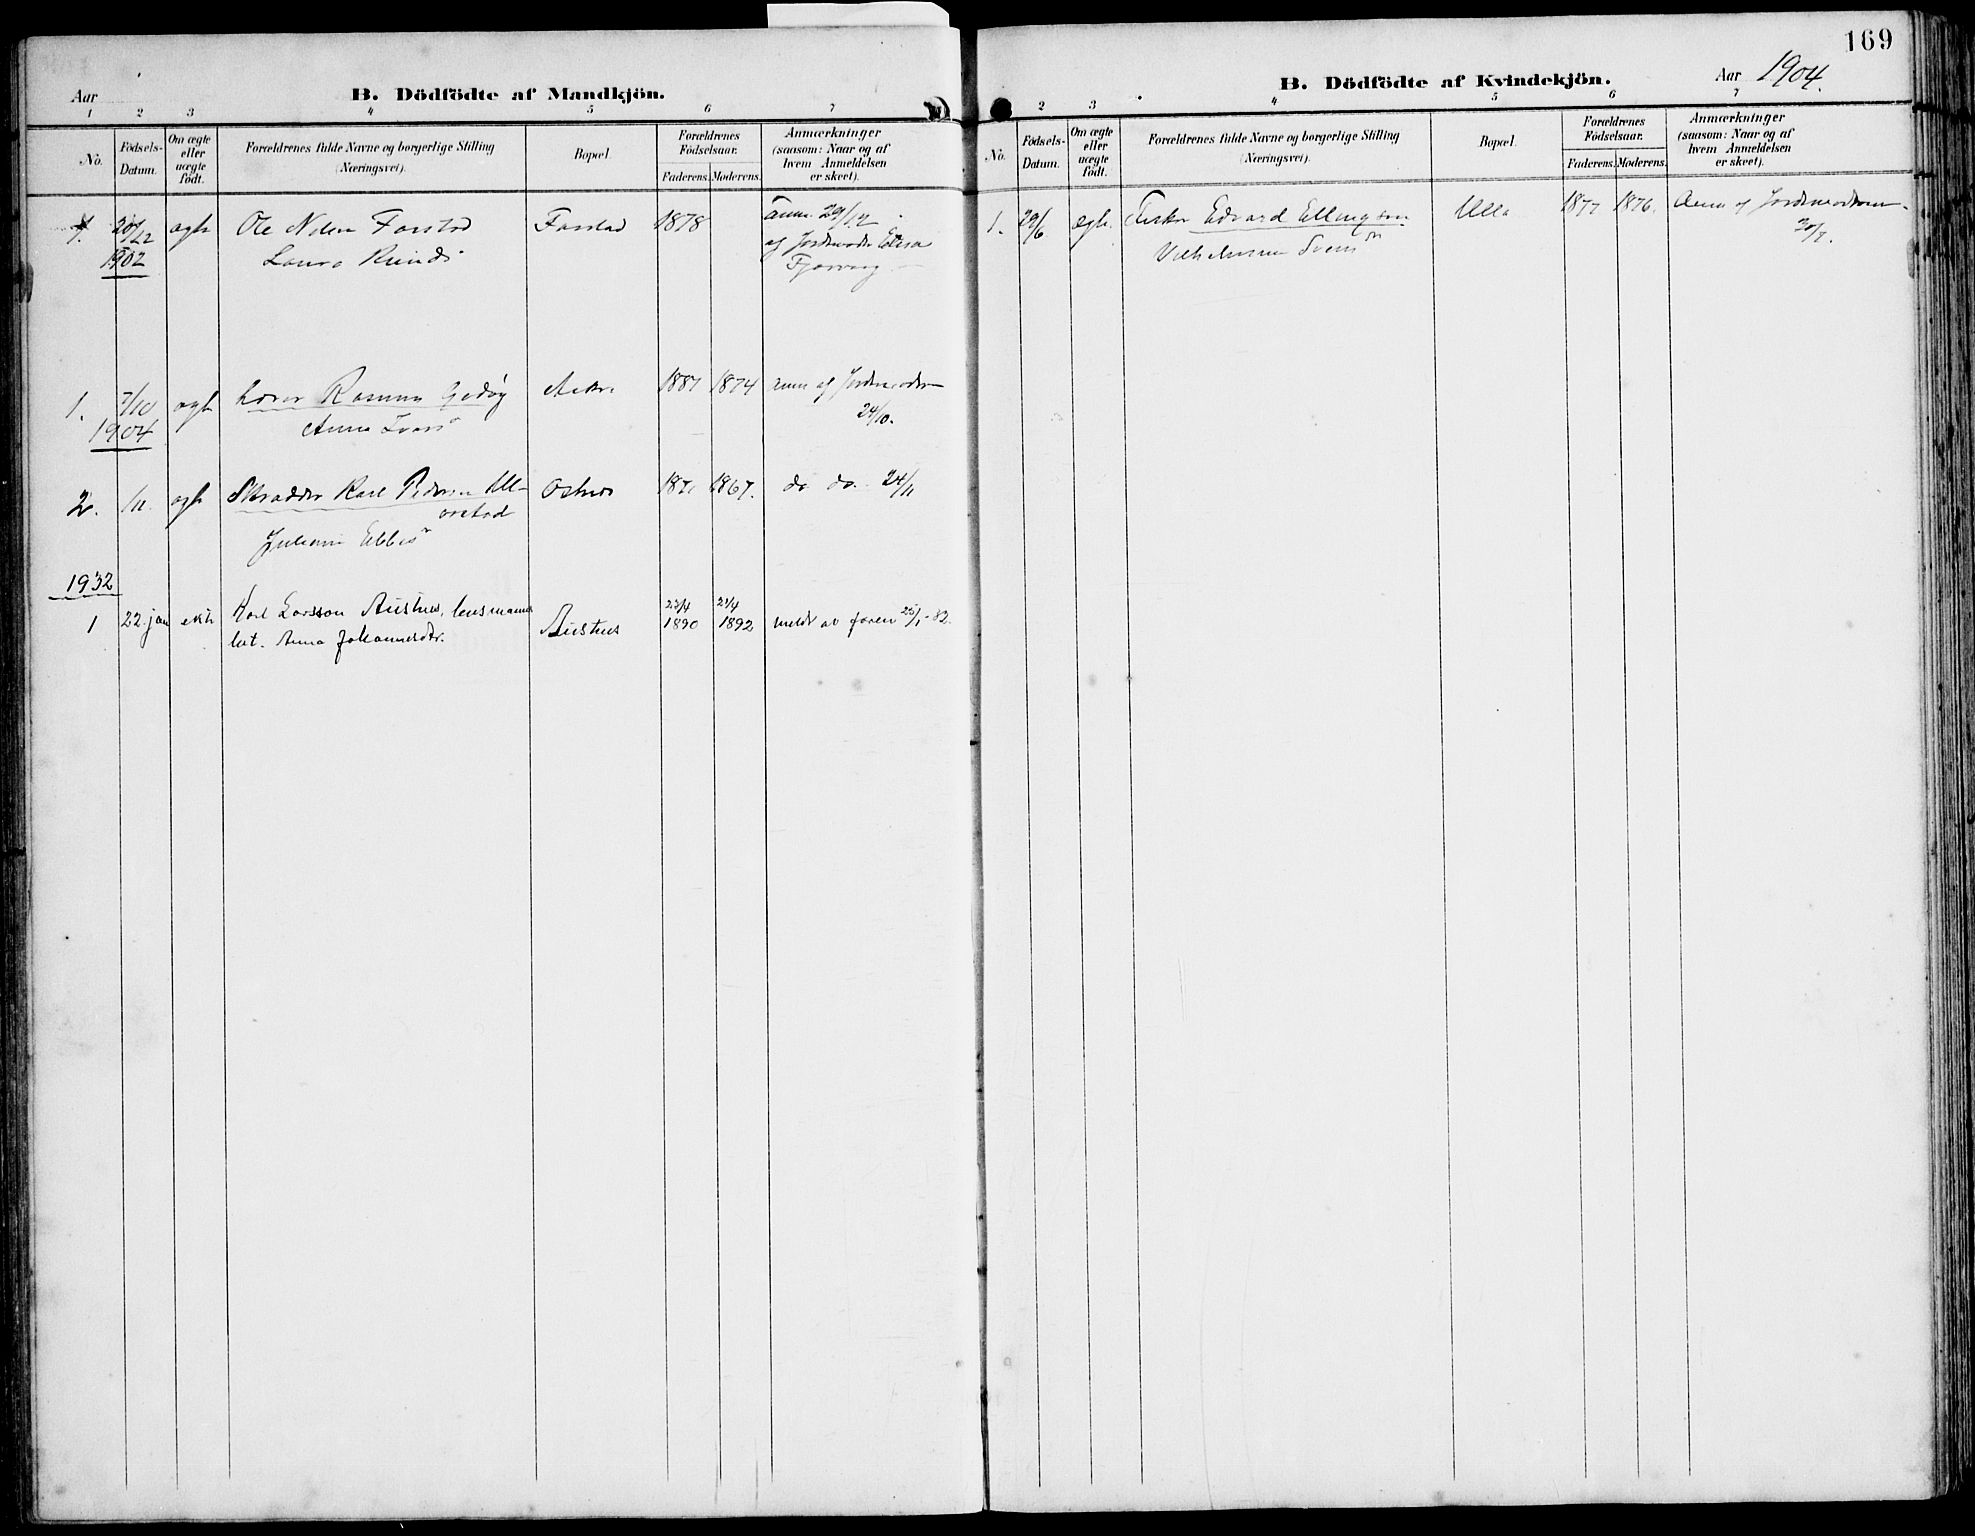 169
Aar
B. Dödfödte af Mandkjön.
1 2 3 4 5 6 7
No.
Födsels-Datum.
Om ægte eller uægte födt.
Forældrenes fulde Navne og borgerlige Stilling
(Næringsvei).
Bopæl.
Forældrenes Födselsaar.
Faderens. Moderens.
Anmærkninger
(saasom: Naar og af
hvem Anmeldelsen
er skeet).
1. 20/12 ægte Ole Nilsen Farstad Farstad 1878 Anm. 29/12
1902 Laura af Jordmoder
1. 7/10 ægte Lærer Rasmus Godøy 1874 anm af Jordmoderen
1904 Anna 24/10.
2. /11 ægte Skrædder Karl Pedersen Ull- Østnes 1867. do do 24/11
orstad
Juliane
1932
1 22. jan ekte Karl Larsson Austnes, lensmann Austnes 23/4 1890 21/4 1892 meldt av faren 25/1-32.
Anna Johannesdtr.
B. Dödfödte af Kvindekjön.
Aar 1904.
2 3 4 5 6 7
No.
Födsels-Datum.
Om ægte eller uægte födt.
Forældrenes fulde Navne og borgerlige Stilling
(Næringsvei).
Bopæl.
Forældrenes Födselsaar.
Faderens. Moderens.
Anmærkninger
(saasom: Naar og af
hvem Anmeldelsen
er skeet).
1. 29/6 ægte Fisker Edvard Ellingsen Ulla 1877 1876. Anm af Jordmoderen
Vilhelmine